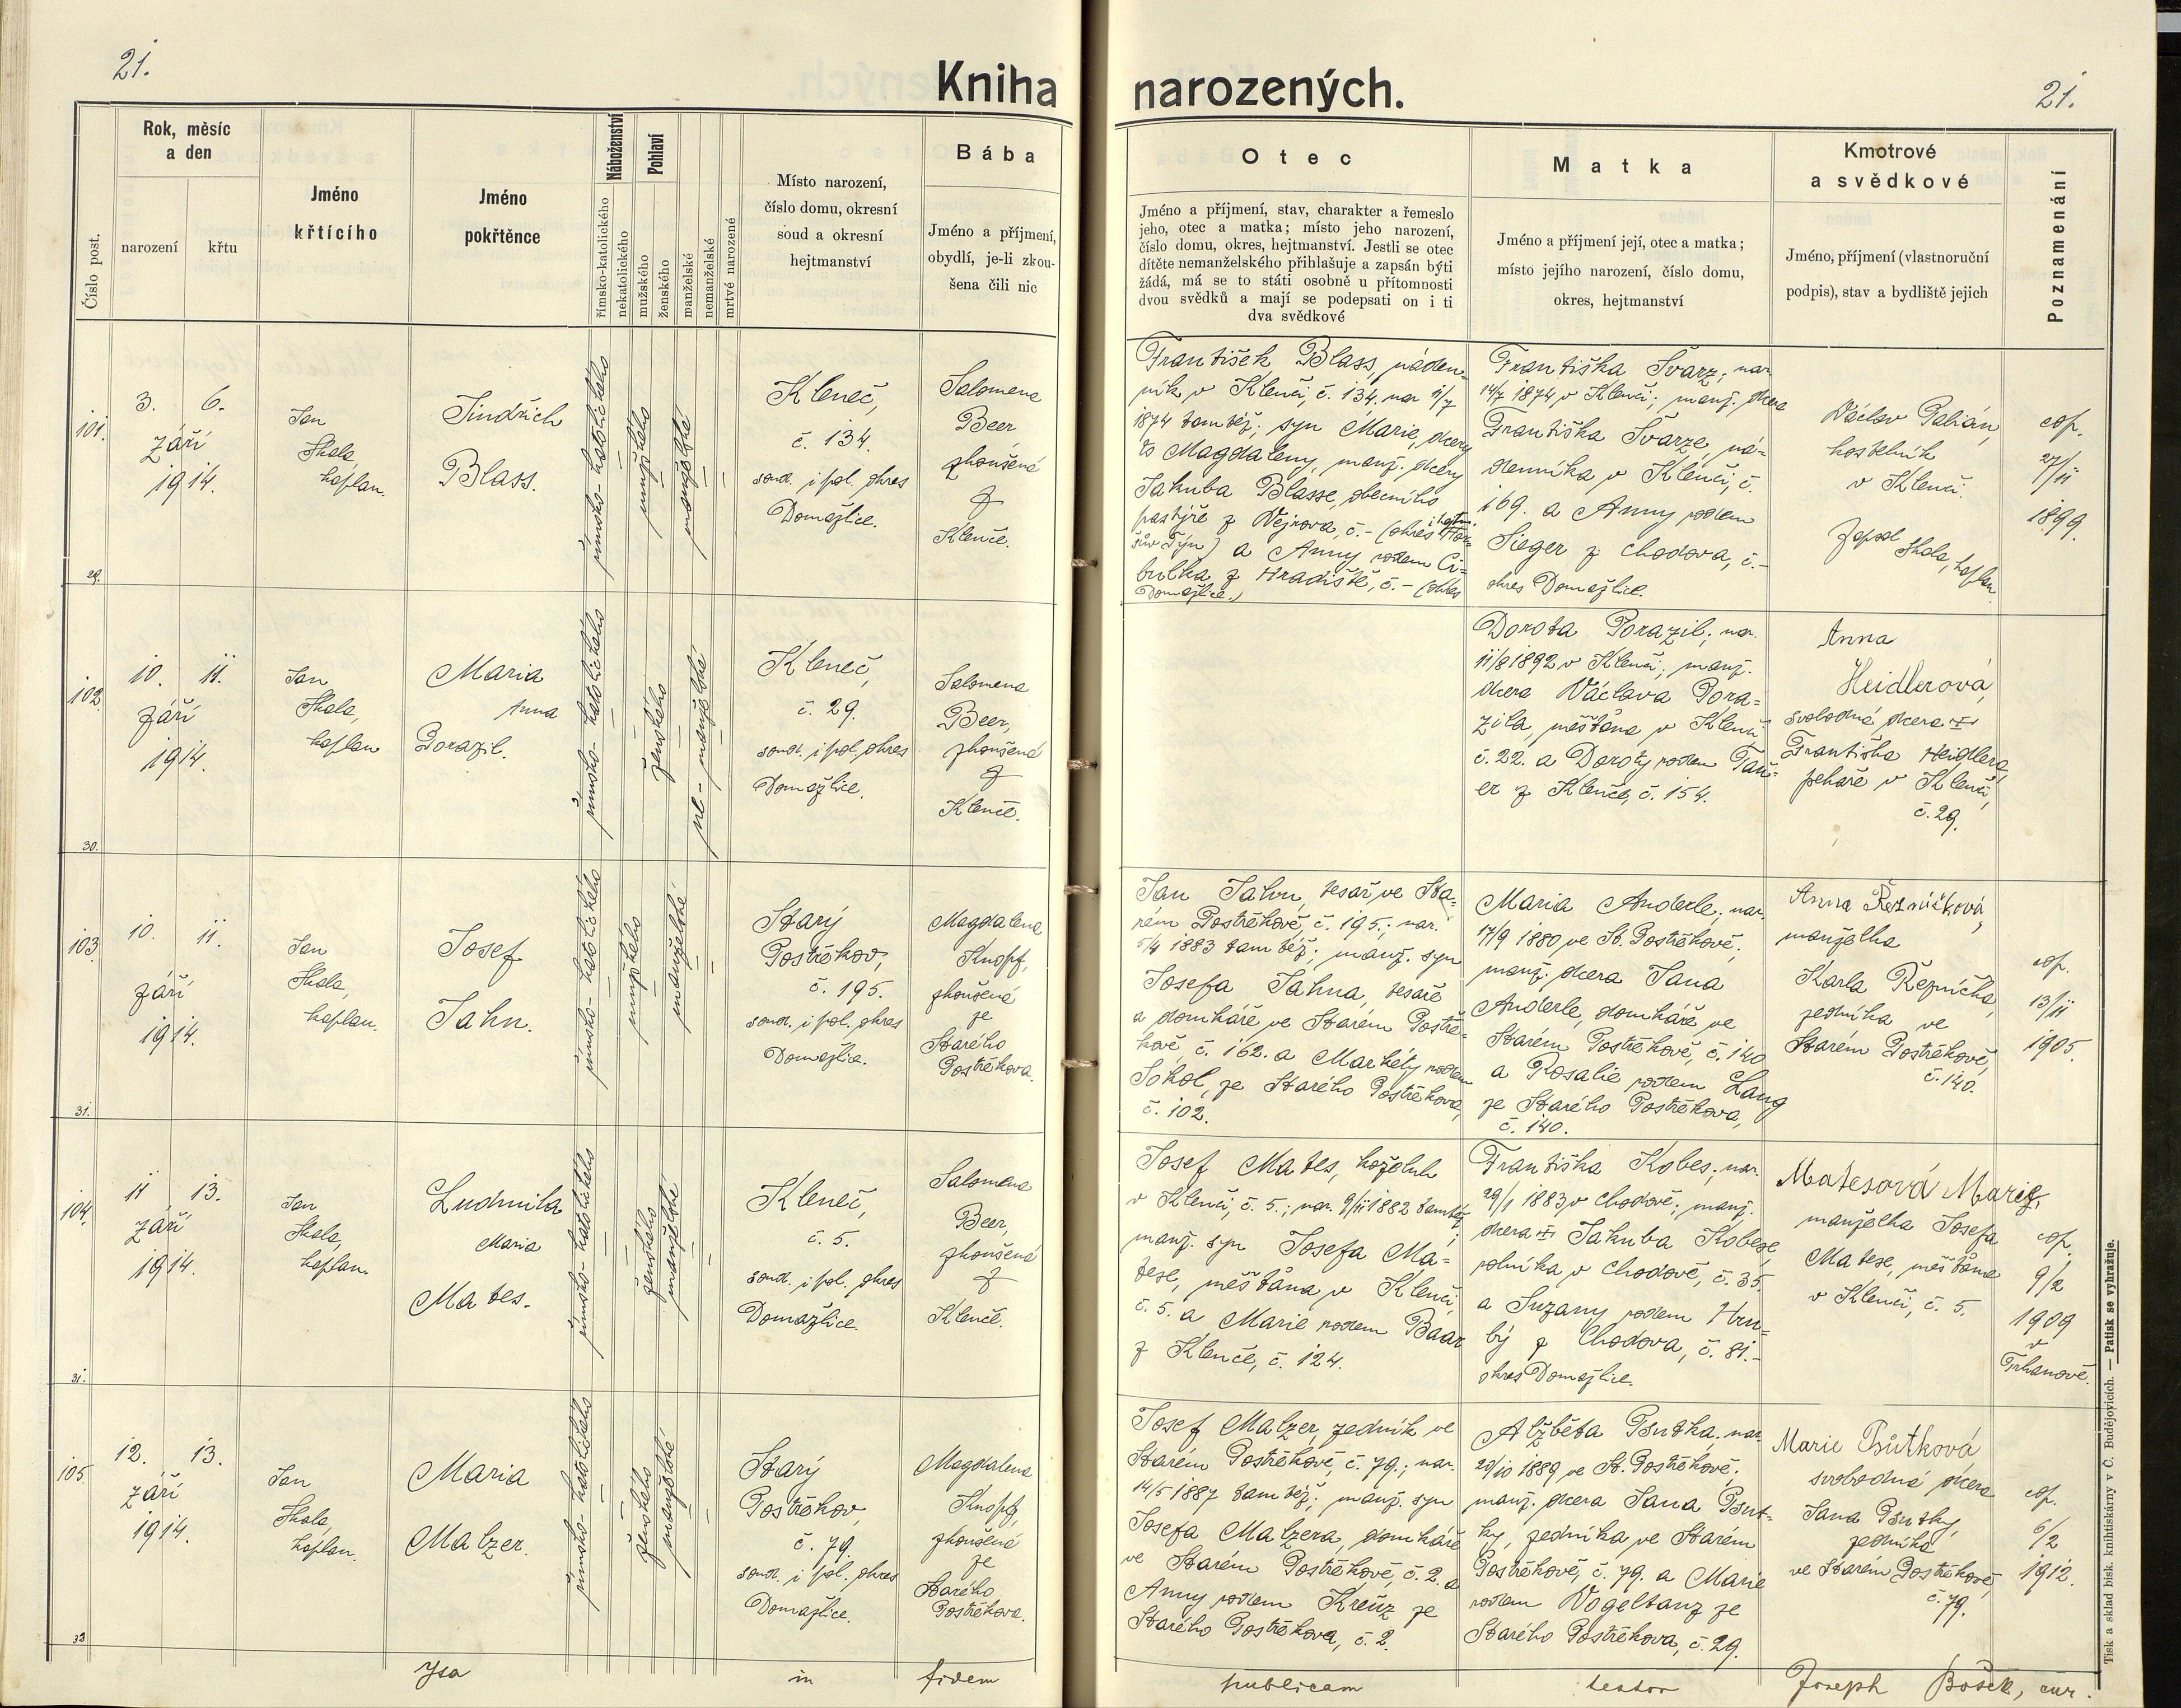 21.
Kniha narozených.
21.
Číslo post.
Rok, měsíc
a den
narození
křtu
Jméno
křtícího
Jméno
pokřtěnce
Náboženství
římsko-katolického
nekatolického
Pohlaví
mužského
ženského
manželské
nemanželské
mrtvě narozené
Místo narození,
číslo domu, okresní
soud a okresní
hejtmanství
Bába
Jméno a příjmení,
obydlí, je-li zkou-
šena čili nic
Otec
Jméno a příjmení, stav, charakter a řemeslo
jeho, otec a matka; místo jeho narození,
číslo domu, okres, hejtmanství. Jestli se otec
dítěte nemanželského přihlašuje a zapsán býti
žádá, má se to státi osobně u přítomnosti
dvou svědků a mají se podepsati on i ti
dva svědkové
Matka
Jméno a příjmení její, otec a matka;
místo jejího narození, číslo domu,
okres, hejtmanství
Kmotrové
a svědkové
Jméno, příjmení (vlastnoruční
podpis), stav a bydliště jejich
Poznamenání
101.
29.
3. 6.
září
1914.
Jan
Skala,
kaplan.
Jindřich
Blass.
římsko-katolického
mužského
manželské
Kleneč,
č. 134.
soud. i pol. okres
Domažlice.
Salomena
Beer
zkoušená
z
Klenče.
František Blass, náden-
ník v Klenči, č. 134. nar 11/7
1874 tamtéž; syn Marie, dcery
Magdaleny, manž. dcery
Jakuba Blasse, obecního
pastýře z Vejrova, č. - (okres
šův Týn) a Anny rodem Ci-
bulka z Hradiště, č. - (okres
Domažlice.)
Františka Švarz; nar.
14/7 1874 v Klenči; manž. dcera
Františka Švarze, ná-
denníka v Klenči, č.
169. a Anny rodem
Sieger z Chodova, č. -
okres Domažlice.
Václav Palián,
kostelník
v Klenči.
Zapsal
Skala, kaplan
cop.
27/11
1899.
102.
30.
10. 11.
září
1914.
Jan
Skala,
kaplan
Maria
Anna
Porazil.
římsko-katolického
ženského
ne-manželské
Kleneč,
č. 29.
soud. i pol. okres
Domažlice.
Salomena
Beer,
zkoušená
z
Klenče.
Dorota Porazil; nar.
11/8 1892 v Klenči; manž.
dcera Václava Pora-
zila, měšťana v Klenči
č. 22. a Doroty rodem
er z Klenče, č. 154.
Anna
Heidlerová,
svobodná dcera
Františka Heidlera,
pekaře v Klenči,
č. 29.
103.
31.
10. 11.
září
1914.
Jan
Skala,
kaplan.
Josef
Jahn.
římsko-katolického
mužského
manželské
Starý
Postřekov,
č. 195.
soud. i pol. okres
Domažlice.
Magdalena
Knopf,
zkoušená
ze
Starého
Postřekova.
Jan Jahn, tesař ve Sta-
rém Postřekově, č. 195.; nar.
5/4 1883 tamtéž; manž. syn
Josefa Jahna, tesaře
a domkáře ve Starém Postře-
kově, č. 162. a Markéty rodem
Sokol, ze Starého Postřekova,
č. 102.
Maria Anderle; nar.
17/9 1880 ve St. Postřekově;
manž. dcera Jana
Anderle, domkáře ve
Starém Postřekově, č. 140
a Rosalie rodem Lang
ze Starého Postřekova,
č. 140.
Anna Řezníčková,
manželka
Karla Řezníčka,
zedníka ve
Starém Postřekově,
č. 140.
cop.
13/11
1905.
104.
31.
11 13.
září
1914.
Jan
Skala,
kaplan.
Ludmila
Maria
Mates.
římsko-katolického
ženského
manželské
Kleneč,
č. 5.
soud. i pol. okres
Domažlice.
Salomena
Beer,
zkoušená
z
Klenče.
Josef Mates, koželuh
v Klenči, č. 5.; nar. 9/11 1882 tamtéž;
manž. syn Josefa Ma-
tese, měšťana v Klenči,
č. 5. a Marie rodem Baar
z Klenče, č. 124.
Františka Kobes; nar.
29/1 1883 v Chodově; manž.
dcera Jakuba Kobese,
rolníka v Chodově, č. 35.
a Suzany rodem Hru-
bý z Chodova, č. 81. -
okres Domažlice.
Matesová Marie,
manželka Josefa
Matese, měšťana
v Klenči, č. 5.
cop.
9/2
1909
v
Trhanově.
105
32
12. 13.
září
1914.
Jan
Skala,
kaplan.
Maria
Malzer.
římsko-katolického
ženského
manželské
Starý
Postřekov,
č. 79
soud. i pol. okres
Domažlice.
Magdalena
Knopf,
zkoušená
ze
Starého
Postřekova.
Josef Malzer, zedník ve
Starém Postřekově, č. 79.; nar.
14/5 1887 tamtéž; manž. syn
Josefa Malzera, domkáře
ve Starém Postřekově, č. 2. a
Anny rodem Kreuz ze
Starého Postřekova, č. 2.
Alžběta Psutka; nar.
29/10 1889 ve St. Postřekově;
manž. dcera Jana Psut-
ky, zedníka ve Starém
Postřekově, č. 79. a Marie
rodem Vogeltanz ze
Starého Postřekova, č. 29.
Marie Psůtková,
svobodná dcera
Jana Psutky,
zedníka
ve Starém Postřekově,
č. 79.
cop.
6/2
1912.
Ita in fidem publicam testor Joseph Bošek, cur.
Tisk a sklad bisk. knihtiskárny v Č. Budějovicích. — Patisk se vyhražuje.